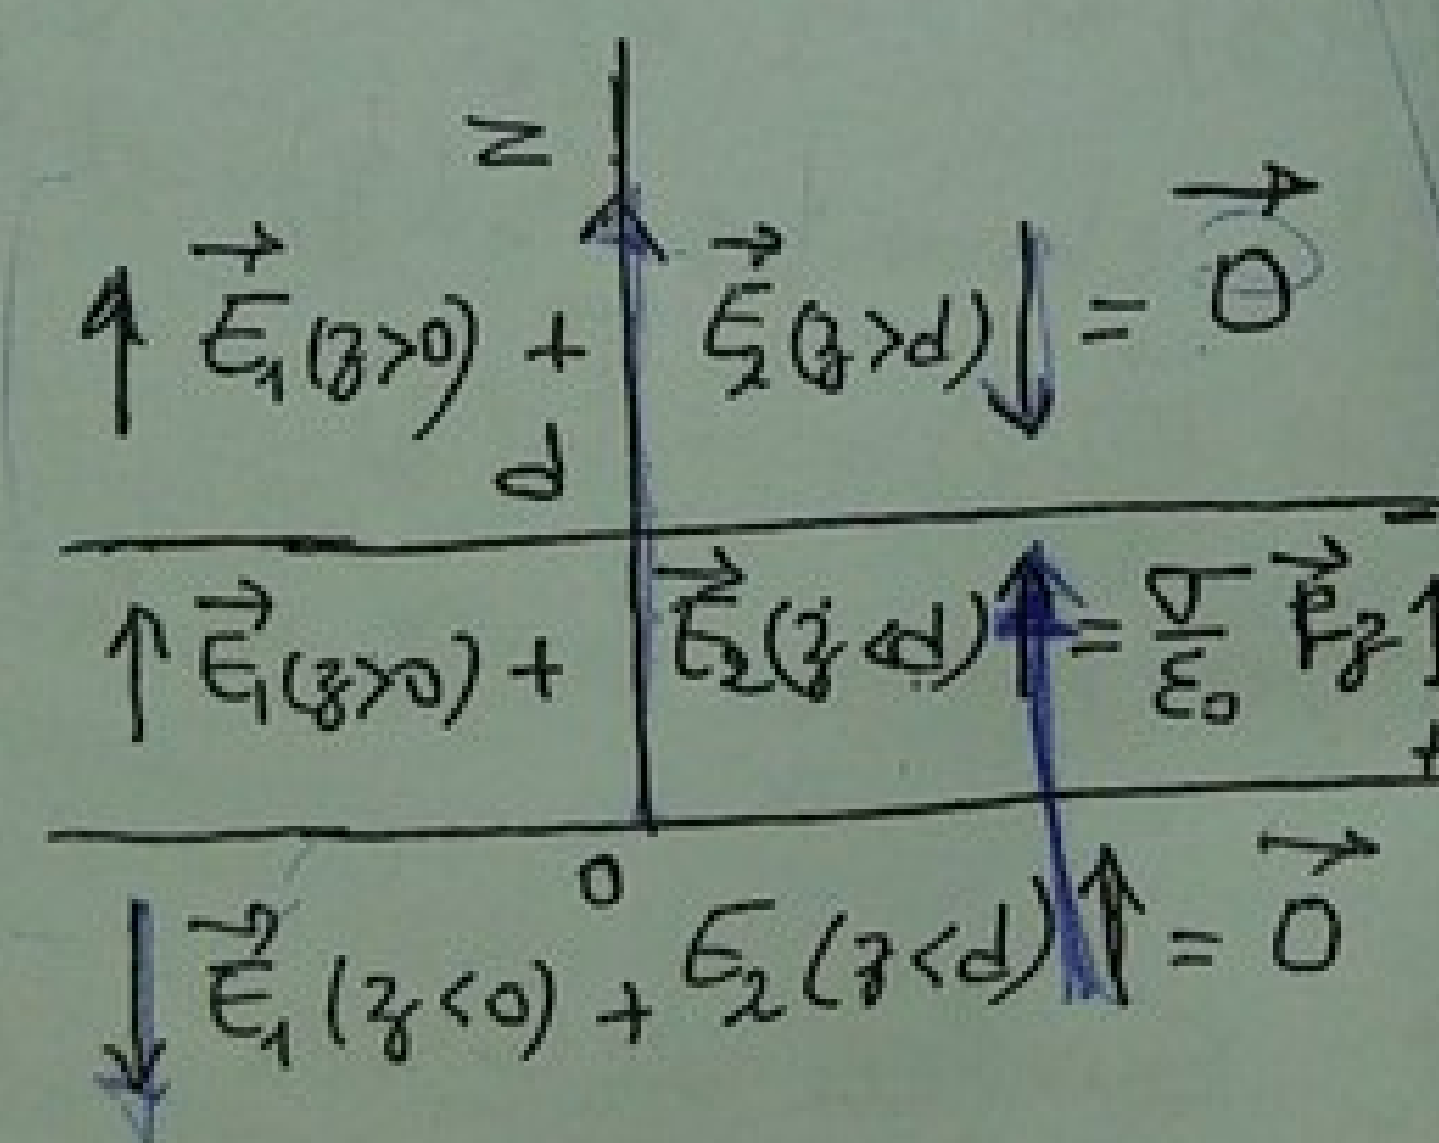 z
↑ E⃗₁(z>0) + E⃗₂(z>d) ↓ = 0⃗
d
−
↑ E⃗₁(z>0) + E⃗₂(z<d) ↑ = σ/ε₀ e⃗z ↑
+
0
↓ E⃗₁(z<0) + E₂(z<d) ↑ = 0⃗